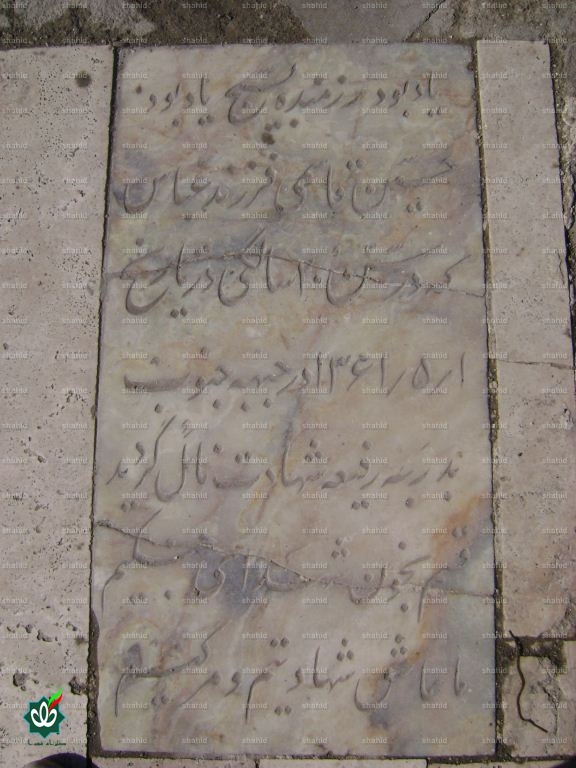 یادبود رزمنده بسیج یادبود
حسین قاسمی فرزند عباس
که در سن ۱۰ سالگی در تاریخ
۱۳۶۱/۵/۱ در جبهه جنوب
بدرجه رفیعه شهادت نائل گردید
قسم بخون شهدای مسلم
ما عاشق شهادتیم و مرگ
shahid